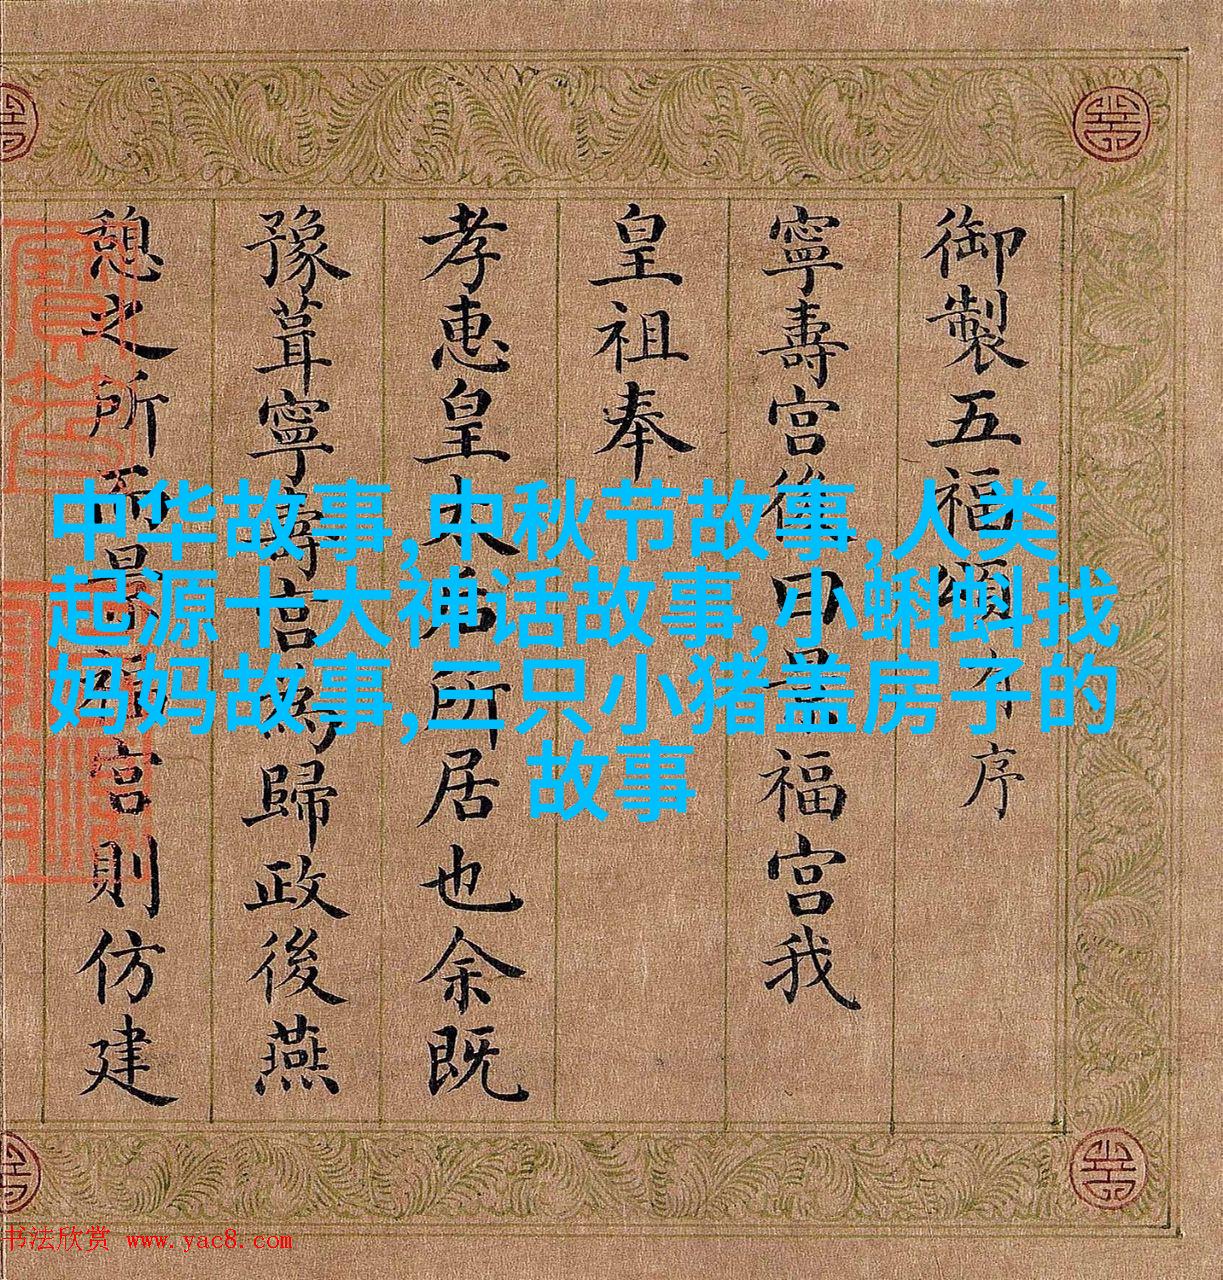 御製五福頌序
寧壽宮後曰景福宮我
皇祖奉
孝惠皇太后所居也余既
豫葺寧壽宮為歸政後燕
憩之所而景福宮則仿建
中华故事,中秋节故事,人类
起源十大神话故事,小蝌蚪找
妈妈故事,三只小猪盖房子的
故事
书法欣赏 www.yac8.com